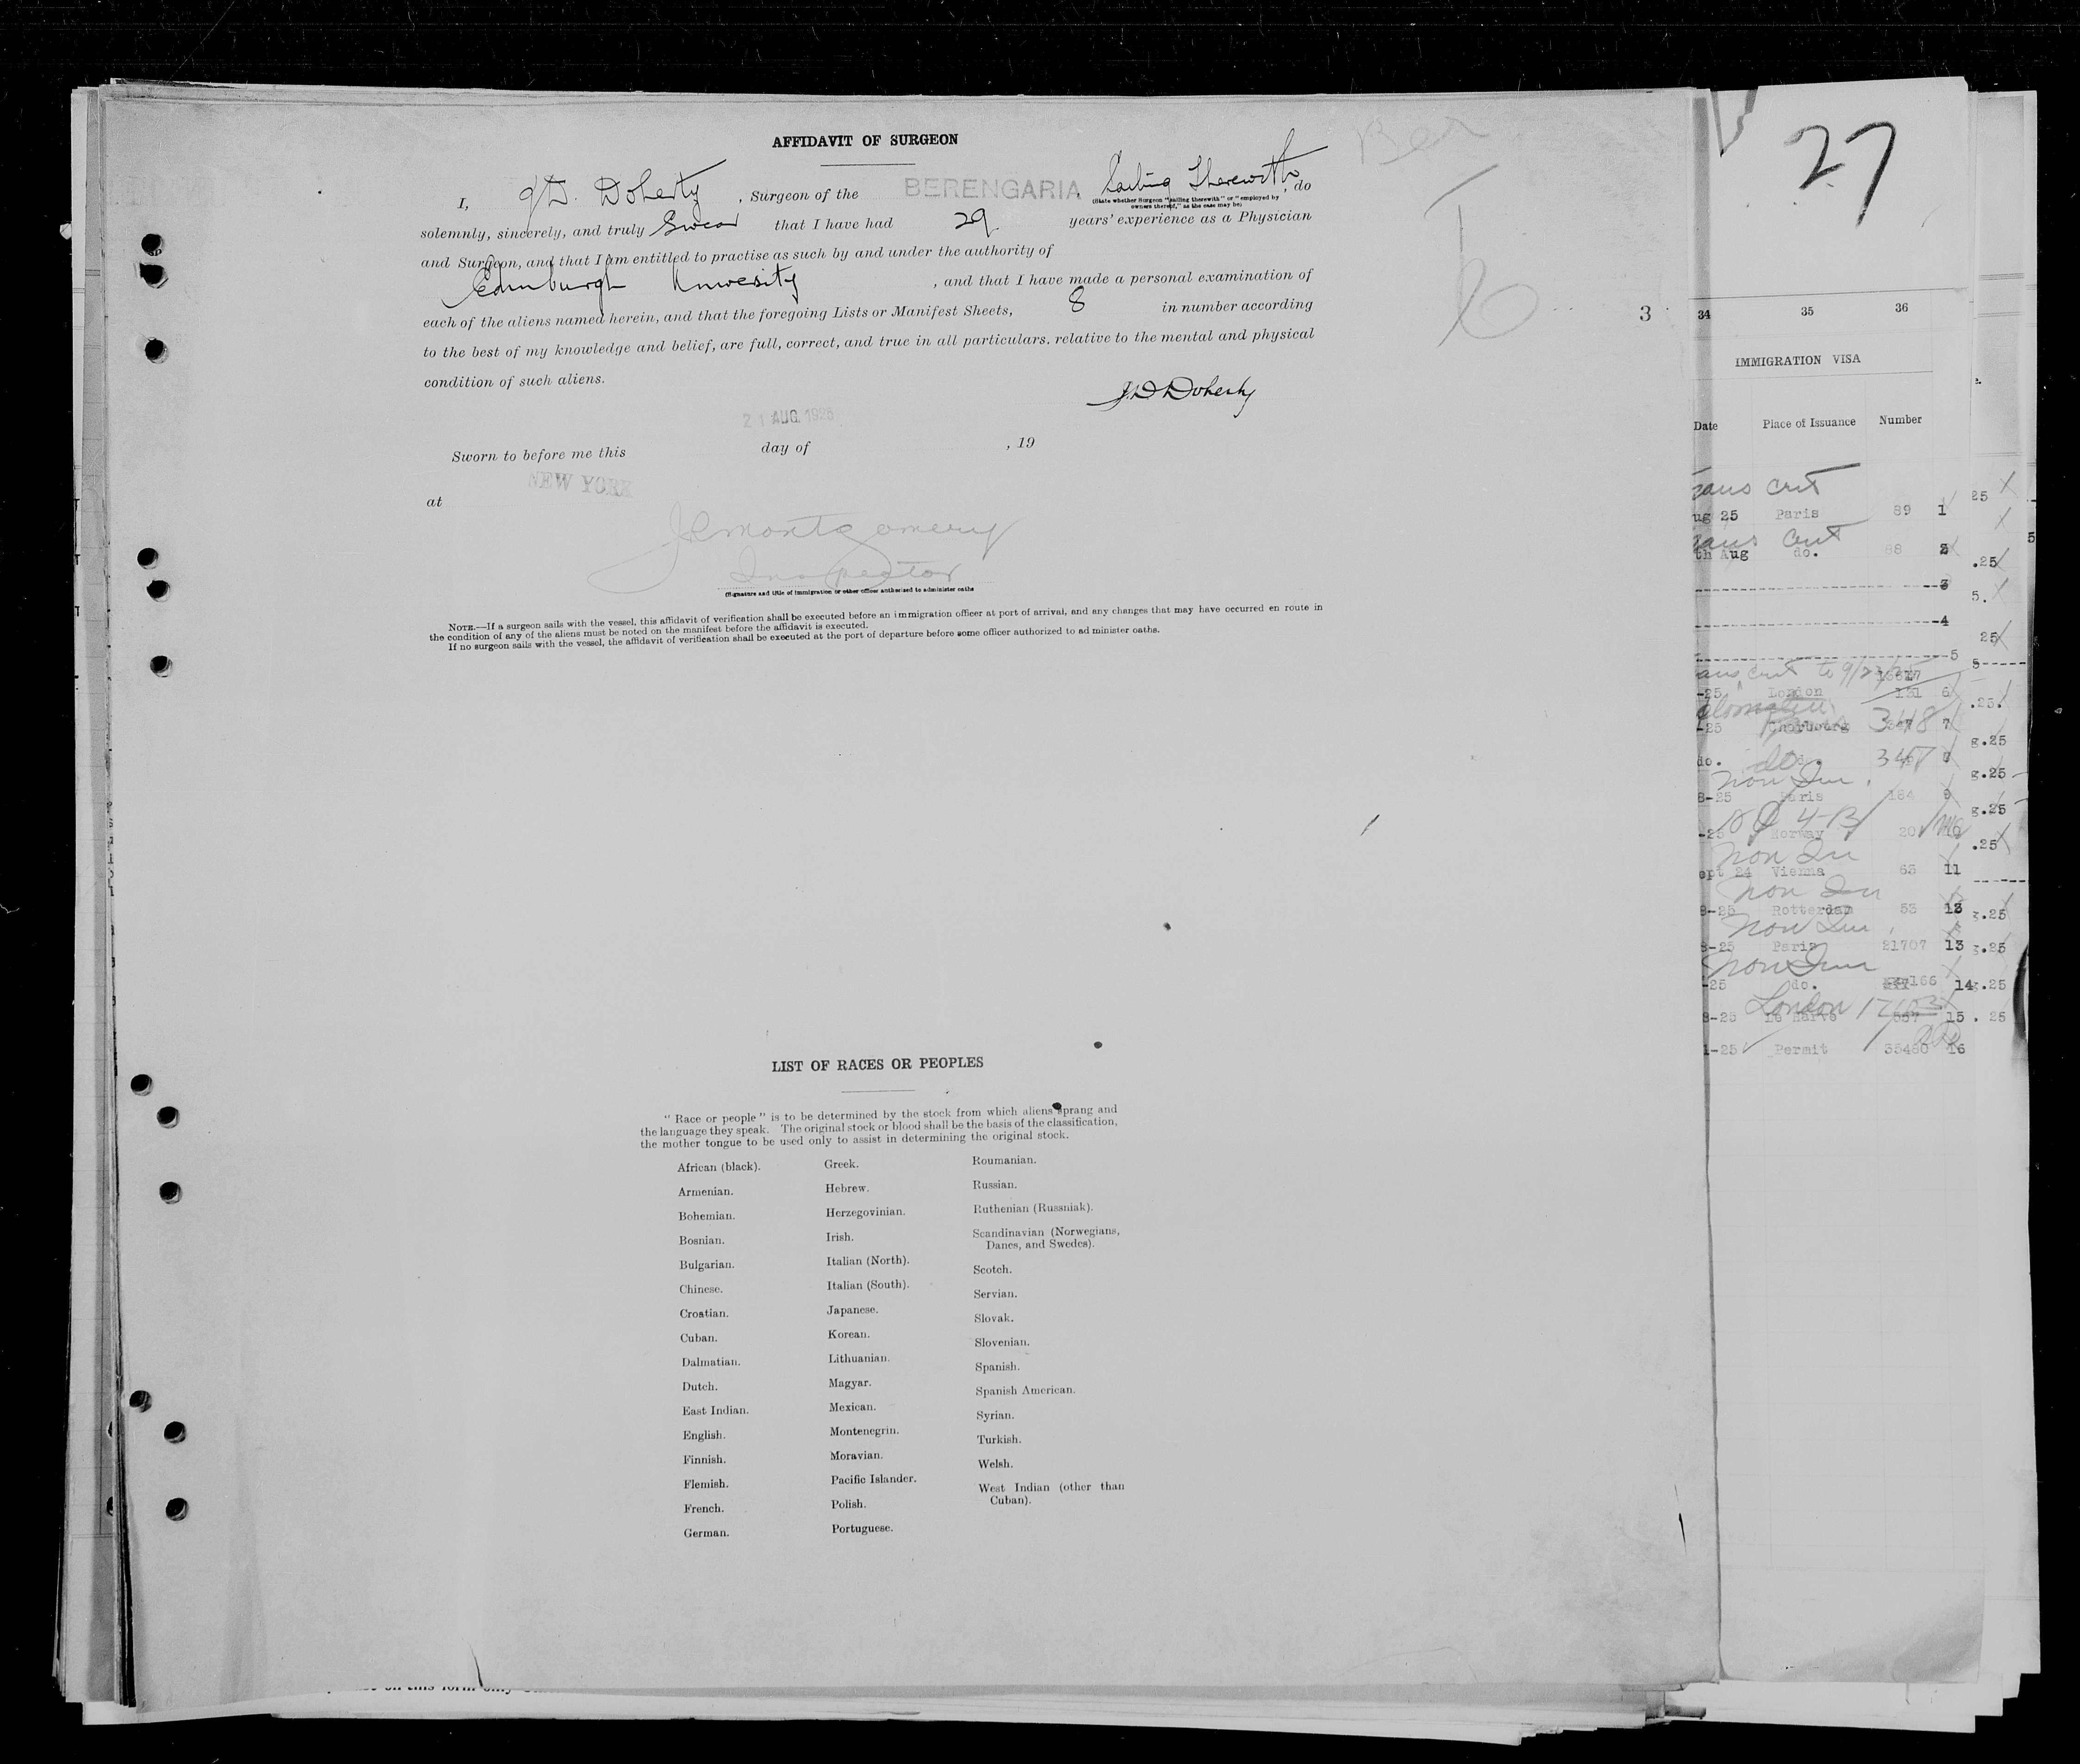 AFFIDAVIT OF SURGEON
I, J.D. Doherty , Surgeon of the BERENGARIA, Sailing Therewith, do
(State whether Surgeon "sailing therewith" or "employed by
owners thereof," as the case may be)
solemnly, sincerely, and truly Swear that I have had 29 years' experience as a Physician
and Surgeon, and that I am entitled to practise as such by and under the authority of
Edinburgh University , and that I have made a personal examination of
each of the aliens named herein, and that the foregoing Lists or Manifest Sheets, 8 in number according
to the best of my knowledge and belief, are full, correct, and true in all particulars. relative to the mental and physical
condition of such aliens.
J.D Doherty
21 AUG. 1925
Sworn to before me this day of , 19
NEW YORK
at
Montgomery
Inspector
(Signature and title of immigration or other officer authorized to administer oaths
NOTE.—If a surgeon sails with the vessel, this affidavit of verification shall be executed before an immigration officer at port of arrival, and any changes that may have occurred en route in
the condition of any of the aliens must be noted on the manifest before the affidavit is executed.
If no surgeon sails with the vessel, the affidavit of verification shall be executed at the port of departure before some officer authorized to ad minister oaths.
LIST OF RACES OR PEOPLES
"Race or people" is to be determined by the stock from which aliens sprang and
the language they speak. The original stock or blood shall be the basis of the classification,
the mother tongue to be used only to assist in determining the original stock.
African (black).
Armenian.
Bohemian.
Bosnian.
Bulgarian.
Chinese.
Croatian.
Cuban.
Dalmatian.
Dutch.
East Indian.
English.
Finnish.
Flemish.
French.
German.
Greek.
Hebrew.
Herzegovinian.
Irish.
Italian (North).
Italian (South).
Japanese.
Korean.
Lithuanian.
Magyar.
Mexican.
Montenegrin.
Moravian.
Pacific Islander.
Polish.
Portuguese.
Roumanian.
Russian.
Ruthenian (Russniak).
Scandinavian (Norwegians,
Danes, and Swedes).
Scotch.
Servian.
Slovak.
Slovenian.
Spanish.
Spanish American.
Syrian.
Turkish.
Welsh.
West Indian (other than
Cuban).
Ber
27
3
34 35 36
IMMIGRATION VISA
Date Place of Issuance Number
ug 25 Paris 89 1
th Aug do. 88 2
3
4
5
to 9/23/25
-25 London 131 6
-25 Cherbourg 348 7
do. do. 347 8
Non Im
8-25 Paris 184 9
4-B
-25 Norway 20 10
Non Im
ept 24 Vienna 63 11
Non Im
8-25 Rotterdam 53 12
Non Im
8-25 Paris 21707 13
Non Im
-25 do. 14
London
8-25 Le Harve 15
1-25 Permit 35480 16